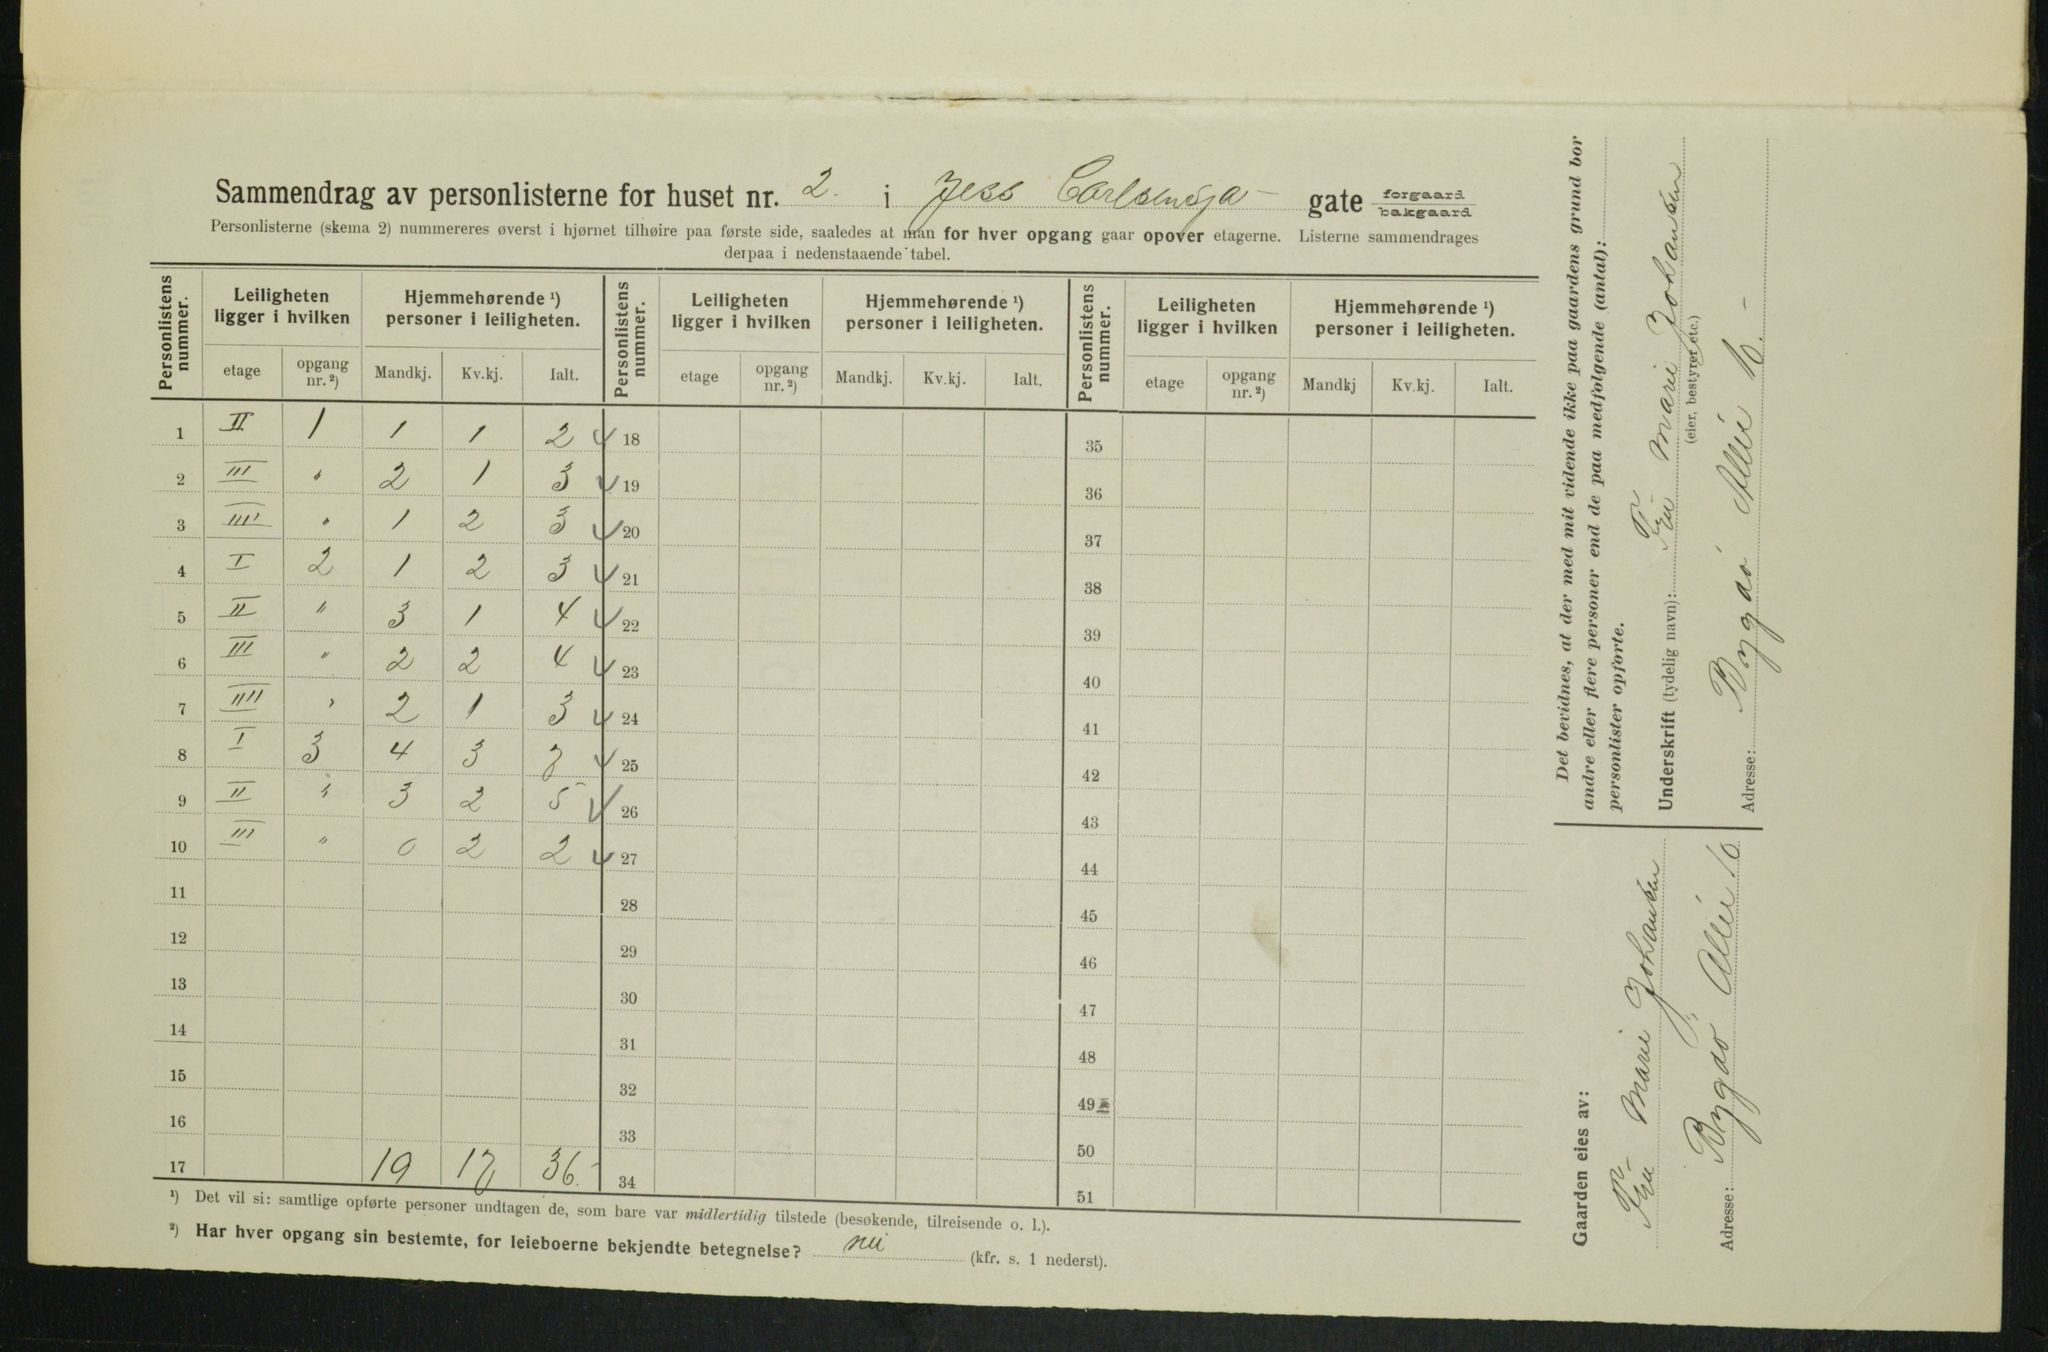 Sammendrag av personlisterne for huset nr. 2. i Jess Carlsensga- gate forgaard bakgaard
Personlisterne (skema 2) nummereres øverst i hjørnet tilhøire paa første side, saaledes at man for hver opgang gaar opover etagerne. Listerne sammendrages
derpaa i nedenstaaende tabel.
Personlistens nummer. Leiligheten ligger i hvilken Hjemmehørende ¹) personer i leiligheten. Personlistens nummer. Leiligheten ligger i hvilken Hjemmehørende ¹) personer i leiligheten. Personlistens nummer. Leiligheten ligger i hvilken Hjemmehørende ¹) personer i leiligheten.
etage opgang nr. ²) Mandkj. Kv.kj. Ialt. etage opgang nr. ²) Mandkj. Kv.kj. Ialt. etage opgang nr. ²) Mandkj Kv.kj. Ialt.
1 II 1 1 1 2 18 35
2 III " 2 1 3 19 36
3 IIII " 1 2 3 20 37
4 I 2 1 2 3 21 38
5 II " 3 1 4 22 39
6 III " 2 2 4 23 40
7 IIII " 2 1 3 24 41
8 I 3 4 3 7 25 42
9 II " 3 2 5 26 43
10 III " 0 2 2 27 44
11 28 45
12 29 46
13 30 47
14 31 48
15 32 49
16 33 50
17 19 17 36. 34 51
¹) Det vil si: samtlige opførte personer undtagen de, som bare var midlertidig tilstede (besøkende, tilreisende o. l.).
²) Har hver opgang sin bestemte, for leieboerne bekjendte betegnelse? nei (kfr. s. 1 nederst).
Det bevidnes, at der med mit vidende ikke paa gaardens grund bor
andre eller flere personer end de paa medfølgende (antal):
personlister opførte.
Underskrift (tydelig navn): Fru Marie Johansen
(eier, bestyrer etc.)
Adresse: Bygdö Allé 10.-
Gaarden eies av:
Fru Marie Johansen
Adresse: Bygdö Allé 10